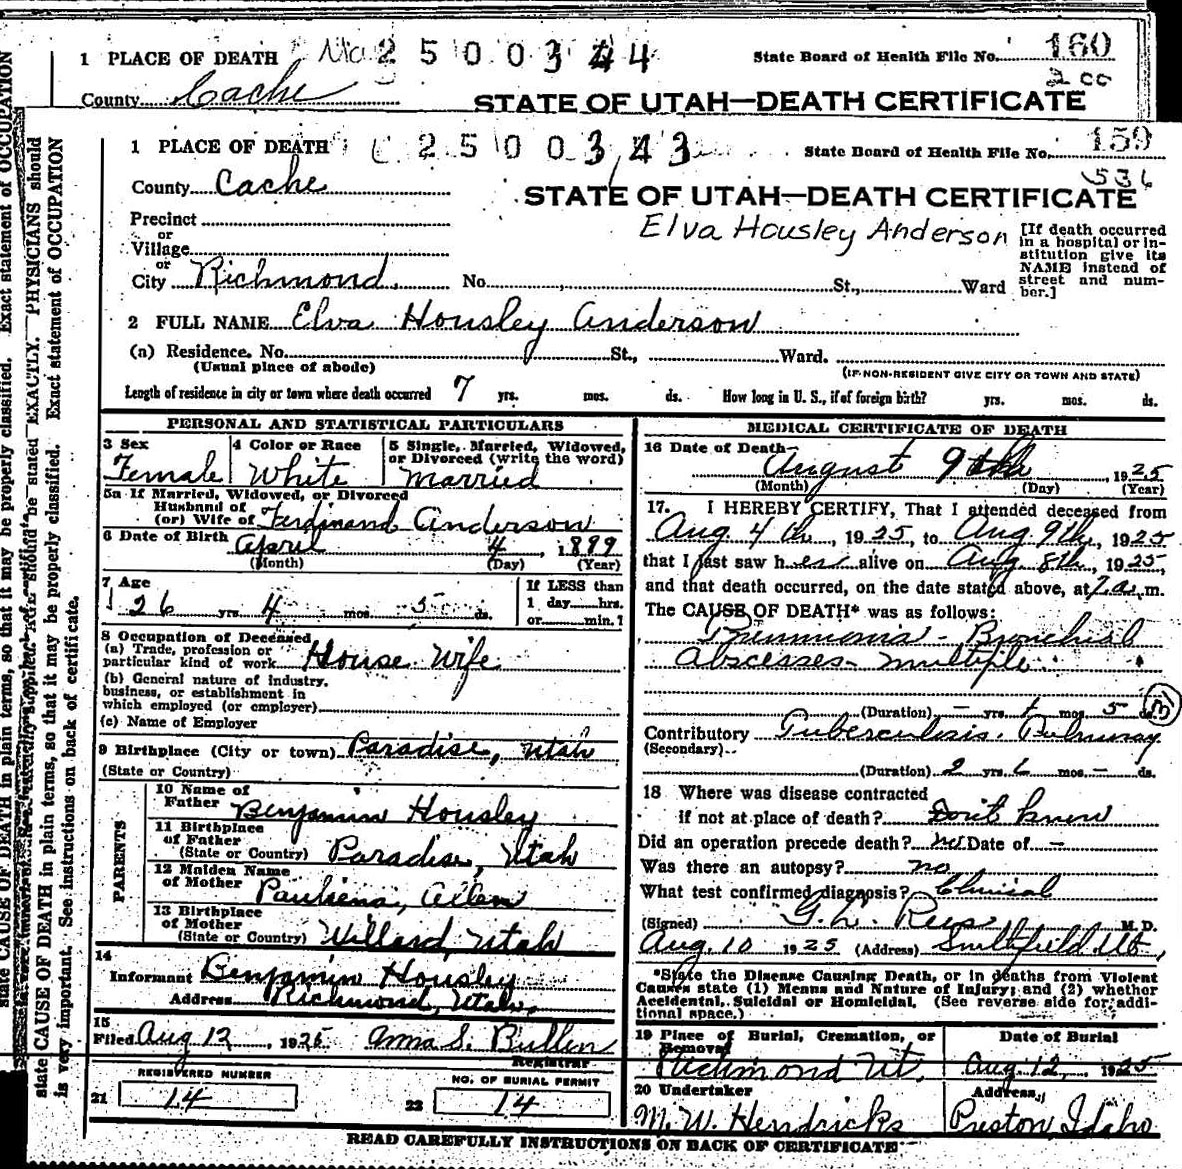 1 PLACE OF DEATH 2 5 0 0 3 4 4 State Board of Health File No. 160
200
County Cache STATE OF UTAH—DEATH CERTIFICATE
1 PLACE OF DEATH 2 5 0 0 3 4 3 State Board of Health File No. 159
536
County Cache STATE OF UTAH—DEATH CERTIFICATE
Elva Housley Anderson
Precinct
or
Village
or
City Richmond. No. St., Ward
[If death occurred
in a hospital or in-
stitution give its
NAME instead of
street and num-
ber.]
2 FULL NAME Elva Housley Anderson
(a) Residence. No. St., Ward.
(Usual place of abode) (IF NON-RESIDENT GIVE CITY OR TOWN AND STATE)
Length of residence in city or town where death occurred 7 yrs. mos. ds. How long in U. S., if of foreign birth? yrs. mos. ds.
PERSONAL AND STATISTICAL PARTICULARS
3 Sex Female
4 Color or Race White
5 Single, Married, Widowed,
or Divorced (write the word)
Married
5a If Married, Widowed, or Divorced
Husband of
(or) Wife of Ferdinand Anderson
6 Date of Birth April 4, 1899
(Month) (Day) (Year)
7 Age
26 yrs. 4 mos. 5 ds.
If LESS than
1 day hrs.
or min.?
8 Occupation of Deceased
(a) Trade, profession or
particular kind of work House Wife
(b) General nature of industry,
business, or establishment in
which employed (or employer)
(c) Name of Employer
9 Birthplace (City or town) Paradise, Utah
(State or Country)
PARENTS
10 Name of
Father Benjamin Housley
11 Birthplace
of Father
(State or Country) Paradise, Utah
12 Maiden Name
of Mother Pauliena, Allen
13 Birthplace
of Mother
(State or Country) Willard, Utah
14
Informant Benjamin Housley
Address Richmond, Utah.
15
Filed Aug 12, 1925 Anna S. Bullen
Registrar
REGISTERED NUMBER
21 14
NO. OF BURIAL PERMIT
22 14
MEDICAL CERTIFICATE OF DEATH
16 Date of Death August 9th, 1925
(Month) (Day) (Year)
17. I HEREBY CERTIFY, That I attended deceased from
Aug 4th, 1925, to Aug. 9th, 1925
that I last saw her alive on Aug. 8th, 1925,
and that death occurred, on the date stated above, at 7 a. m.
The CAUSE OF DEATH* was as follows:
Pneumonia - Bronchial
Abscesses - multiple
(Duration) — yrs. mos. 5 ds. 31
Contributory Tuberculosis. Pulmonary
(Secondary)
(Duration) 2 yrs. 6 mos — ds.
18 Where was disease contracted
if not at place of death? Don't know
Did an operation precede death? no Date of —
Was there an autopsy? no
What test confirmed diagnosis? Clinical
(Signed) G. L. Rees M. D.
Aug. 10 1925 (Address) Smithfield Ut.,
*State the Disease Causing Death, or in deaths from Violent
Causes state (1) Means and Nature of Injury; and (2) whether
Accidental, Suicidal or Homicidal. (See reverse side for addi-
tional space.)
19 Place of Burial, Cremation, or
Removal
Richmond Ut.
Date of Burial
Aug. 12, 1925
20 Undertaker
M. W. Hendricks
Address,
Preston, Idaho
READ CAREFULLY INSTRUCTIONS ON BACK OF CERTIFICATE
state CAUSE OF DEATH in plain terms, so that it may be properly classified. Exact statement of OCCUPATION
stated EXACTLY. PHYSICIANS should
state CAUSE OF DEATH in plain terms, so that it may be properly classified. Exact statement of OCCUPATION
is very important. See instructions on back of certificate.